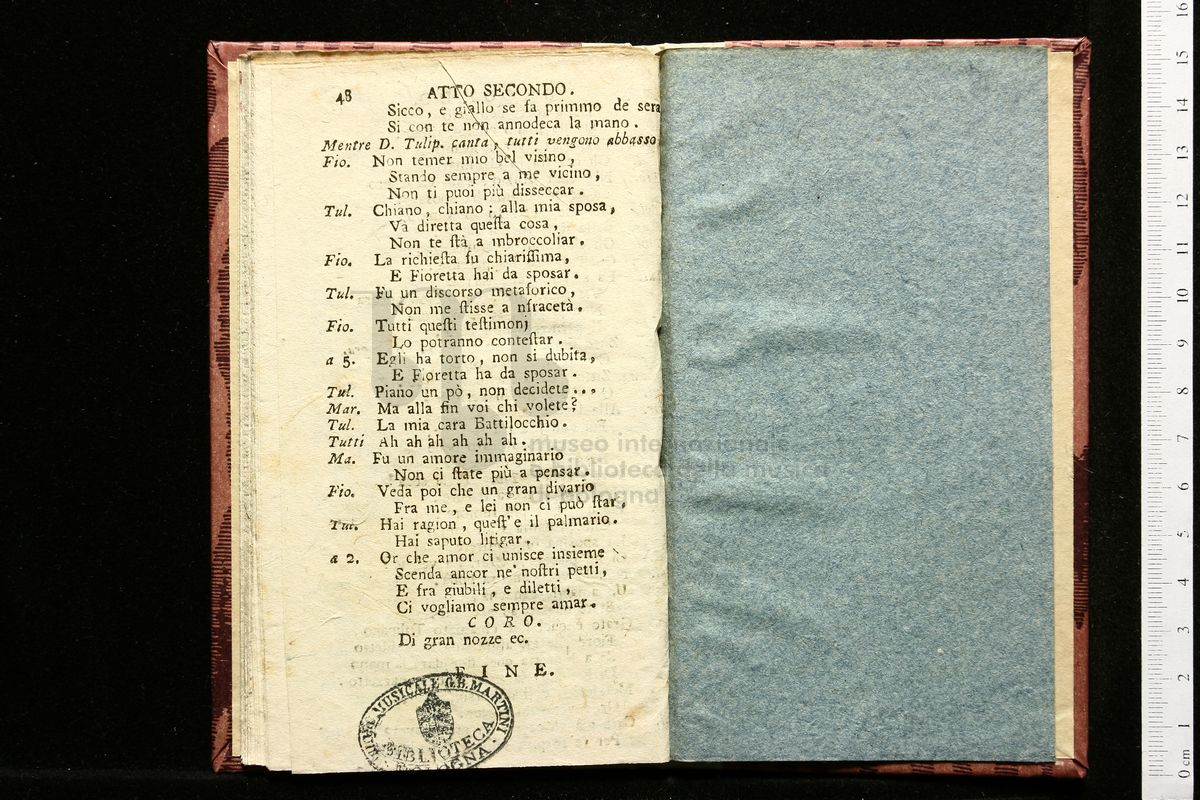 48 ATTO SECONDO.
Sicco, e giallo se fa primmo de sera
Si con te non annodeca la mano.
Mentre D. Tulip. canta, tutti vengono abbasso,
Fio. Non temer mio bel visino,
Stando sempre a me vicino,
Non ti puoi più disseccar.
Tul. Chiano, chiano; alla mia sposa,
Và diretta questa cosa,
Non te stà a mbroccoliar.
Fio. La richiesta fu chiarissima,
E Fioretta hai da sposar.
Tul. Fu un discorso metaforico,
Non me stisse a nfracetà.
Fio. Tutti questi testimonj
Lo potranno contestar.
a 5. Egli ha torto, non si dubita,
E Fioretta ha da sposar.
Tul. Piano un pò, non decidete...
Mar. Ma alla fin voi chi volete?
Tul. La mia cara Battilocchio.
Tutti Ah ah ah ah ah ah.
Ma. Fu un amore immaginario
Non ci state più a pensar.
Fio. Veda poi che un gran divario
Fra me, e lei non ci può star.
Tul. Hai ragion, quest'e il palmario.
Hai saputo litigar.
a 2. Or che amor ci unisce insieme
Scenda ancor ne' nostri petti,
E fra' giubili, e diletti,
Ci vogliamo sempre amar.
CORO.
Di gran nozze ec.
FINE.
MUSICALE G.B. MARTINI
BIBLIOTECA
museo internazionale
e biblioteca della musica
di bologna
0 cm 1 2 3 4 5 6 7 8 9 10 11 12 13 14 15 16